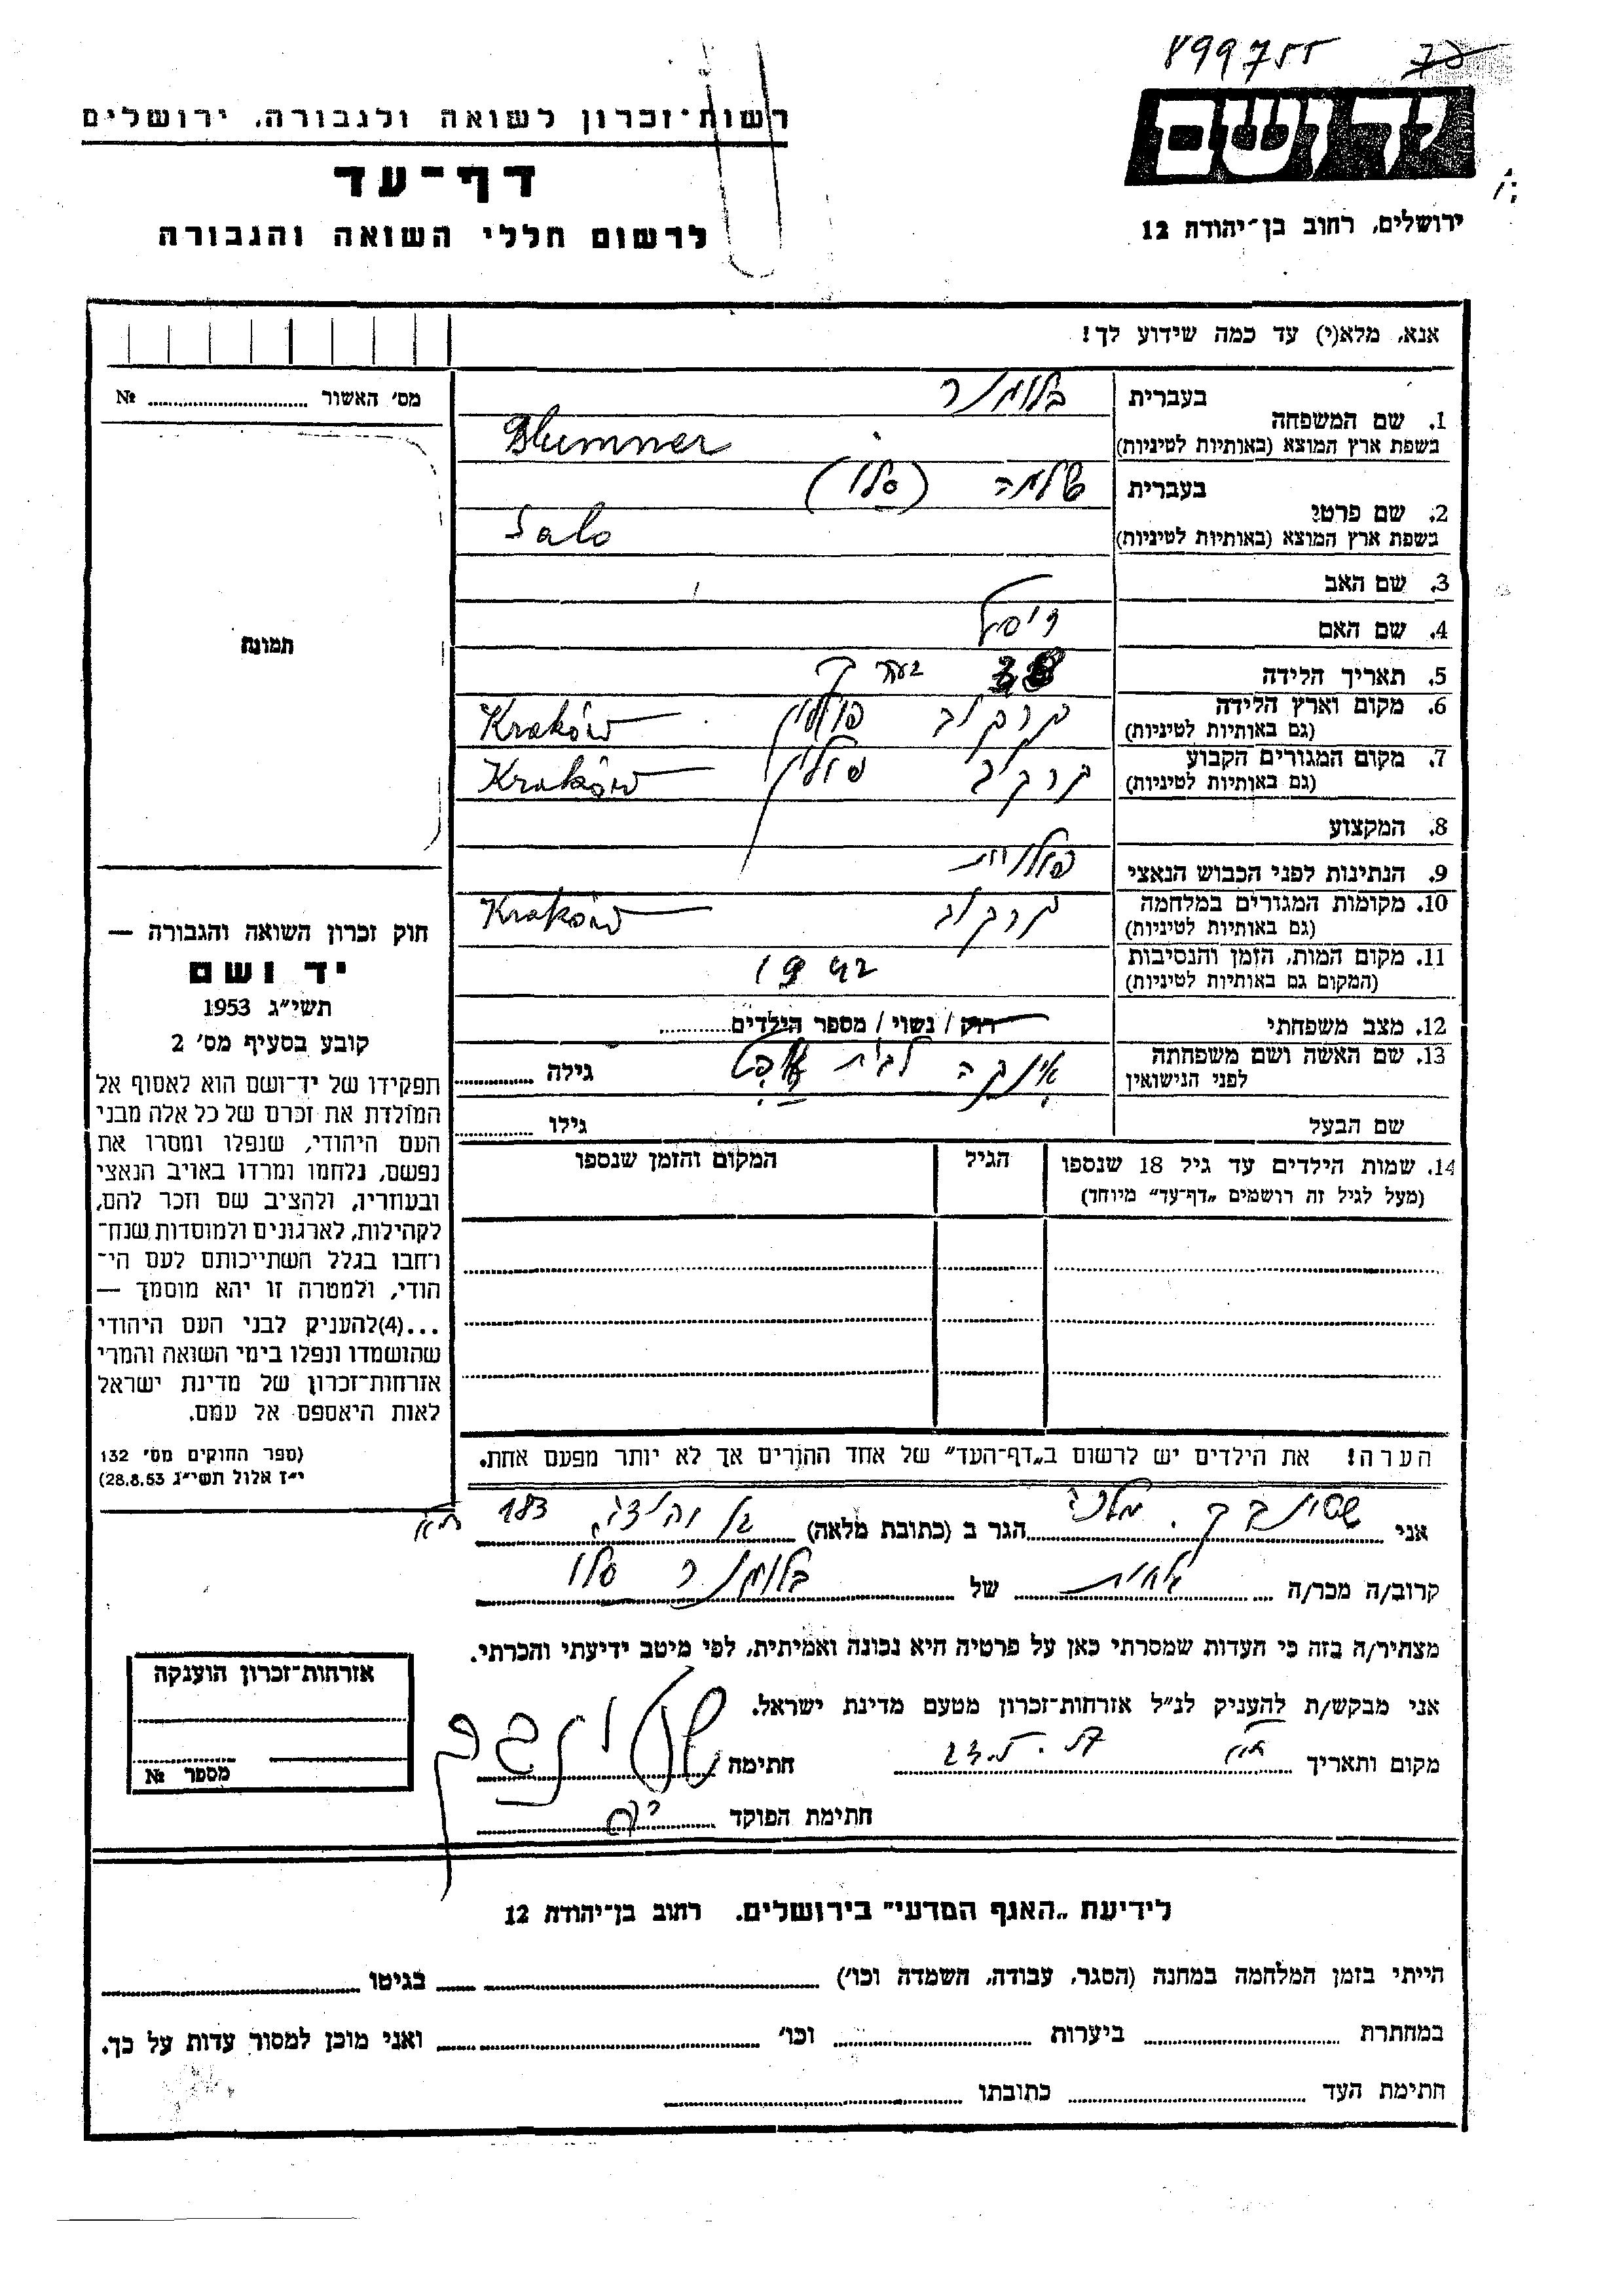 899755
רשות־זכרון לשואה ולגבורה, ירושלים
יד ושם
דף־עד
לרשום חללי השואה והגבורה
ירושלים, רחוב בן־יהודה 12
אנא, מלא(י) עד כמה שידוע לך!
מס׳ האשור № ........
בעברית
1. שם המשפחה
בלומנר
בשפת ארץ המוצא (באותיות לטיניות)
Blumner
בעברית
שלמה (סלו)
2. שם פרטי
בשפת ארץ המוצא (באותיות לטיניות)
Salo
3. שם האב
4. שם האם
5. תאריך הלידה
38 בערך
6. מקום וארץ הלידה
(גם באותיות לטיניות)
קרקוב פולין Kraków
7. מקום המגורים הקבוע
(גם באותיות לטיניות)
קרקוב פולין Kraków
8. המקצוע
9. הנתינות לפני הכבוש הנאצי
פולנית
10. מקומות המגורים במלחמה
(גם באותיות לטיניות)
קרקוב Kraków
11. מקום המות, הזמן והנסיבות
(המקום גם באותיות לטיניות)
1942
12. מצב משפחתי
רוק / נשוי / מספר הילדים........
13. שם האשה ושם משפחתה
לפני הנישואין
לבית
גילה ........
שם הבעל גילו ........
14. שמות הילדים עד גיל 18 שנספו
(מעל לגיל זה רושמים „דף־עד" מיוחד)
הגיל
המקום והזמן שנספו
תמונה
חוק זכרון השואה והגבורה —
יד ושם
תשי״ג 1953
קובע בסעיף מס׳ 2
תפקידו של יד־ושם הוא לאסוף אל
המולדת את זכרם של כל אלה מבני
העם היהודי, שנפלו ומסרו את
נפשם, נלחמו ומרדו באויב הנאצי
ובעוזריו, ולהציב שם וזכר להם,
לקהילות, לארגונים ולמוסדות שנח־
רחבו בגלל השתייכותם לעם הי־
הודי, ולמטרה זו יהא מוסמך —
...(4)להעניק לבני העם היהודי
שהושמדו ונפלו בימי השואה והמרי
אזרחות־זכרון של מדינת ישראל
לאות היאספם אל עמם.
(ספר החוקים מס׳ 132
י״ז אלול תשי״ג 28.8.53)
הערה! את הילדים יש לרשום ב„דף־העד" של אחד ההורים אך לא יותר מפעם אחת.
אני ........ הגר ב (כתובת מלאה) 183 ת״א
קרוב/ה מכר/ה ........ של בלומנר סלו
מצהיר/ה בזה כי העדות שמסרתי כאן על פרטיה היא נכונה ואמיתית, לפי מיטב ידיעתי והכרתי.
אני מבקש/ת להעניק לנ״ל אזרחות־זכרון מטעם מדינת ישראל.
מקום ותאריך ........ חתימה ........
חתימת הפוקד ........
אזרחות־זכרון הוענקה
מספר №
לידיעת „האגף המדעי" בירושלים. רחוב בן־יהודה 12
הייתי בזמן המלחמה במחנה (הסגר, עבודה, השמדה וכו׳) ........ בגיטו ........
במחתרת ........ ביערות ........ וכו׳ ........ ואני מוכן למסור עדות על כך.
חתימת העד ........ כתובתו ........